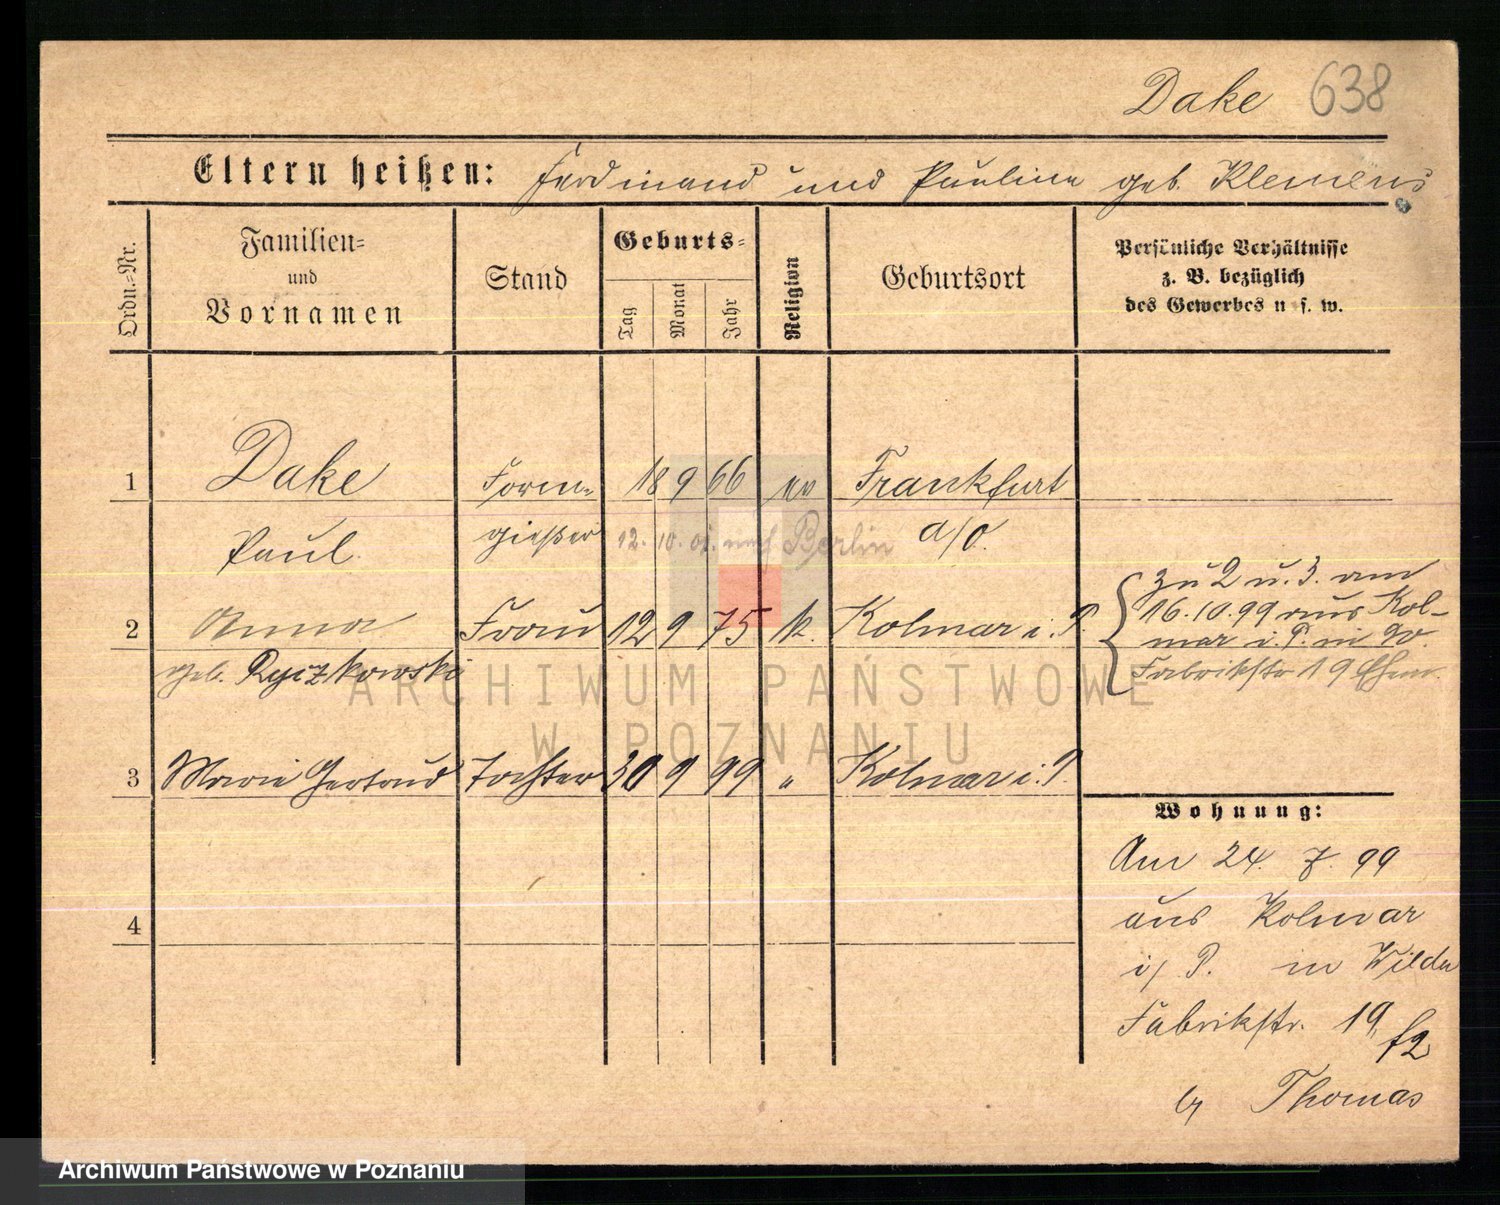 Dake 638
Eltern heißen: Ferdinand und Pauline geb. Klemens
Ordn.-Nr.
Familien-
und
Vornamen
Stand
Geburts-
Tag
Monat
Jahr
Religion
Geburtsort
Persönliche Verhältnisse
z. B. bezüglich
des Gewerbes u. s. w.
1 Dake Form- 18 9 66 ev Frankfurt
Paul gießer 12. 10. 01. nach Berlin a/O.
2 Anna Frau 12 9 75 k. Kolmar i. P.
geb. Ryczkowski
zu 2 u. 3. am
16.10.99 aus Kol-
mar i. P. in W.
Fabrikstr 19
3 Marie Gertrud Tochter 30 9 99 " Kolmar i. P.
4
Wohnung:
Am 24. 7. 99
aus Kolmar
i/ P. in Wilda
Fabrikstr. 19,
b/ Thomas
ARCHIWUM PAŃSTWOWE
W POZNANIU
Archiwum Państwowe w Poznaniu